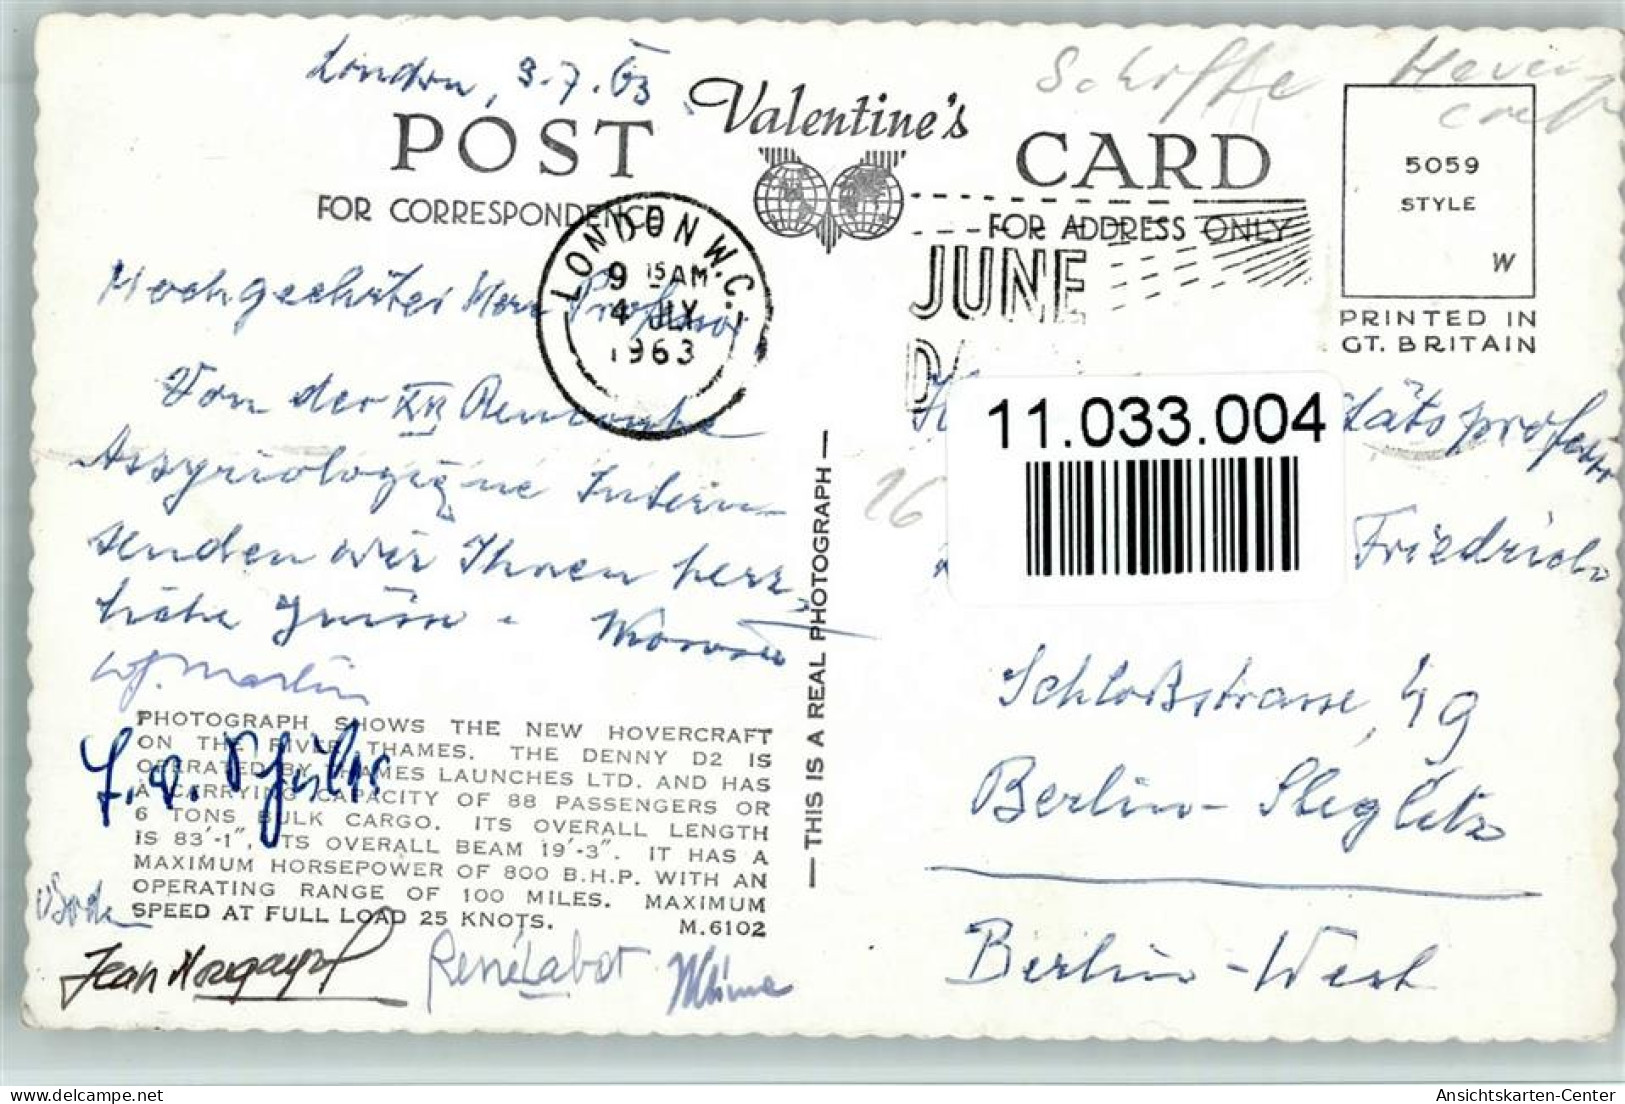 London, 3.7.63
Schiffe Hover
craft
Valentine's
POST CARD
FOR CORRESPONDENCE
FOR ADDRESS ONLY
5059
STYLE
W
PRINTED IN
GT. BRITAIN
LONDON W.C.1
9 15 AM
4 JLY
1963
JUNE
Hochgeehrter Herr Professor
Von der XII Rencontre
Assyriologique Intern.
senden wir Ihnen herz
liche Grüsse.
W.J. Martin
PHOTOGRAPH SHOWS THE NEW HOVERCRAFT
ON THE RIVER THAMES. THE DENNY D2 IS
OPERATED BY THAMES LAUNCHES LTD. AND HAS
A CARRYING CAPACITY OF 88 PASSENGERS OR
6 TONS BULK CARGO. ITS OVERALL LENGTH
IS 83'-1". ITS OVERALL BEAM 19'-3". IT HAS A
MAXIMUM HORSEPOWER OF 800 B.H.P. WITH AN
OPERATING RANGE OF 100 MILES. MAXIMUM
SPEED AT FULL LOAD 25 KNOTS. M.6102
Jean Nougayrol
René Labat
— THIS IS A REAL PHOTOGRAPH —
11.033.004
26
tätsprofessor
Friedrich
Schloßstrasse 49
Berlin-Steglitz
Berlin-West
Ansichtskarten-Center